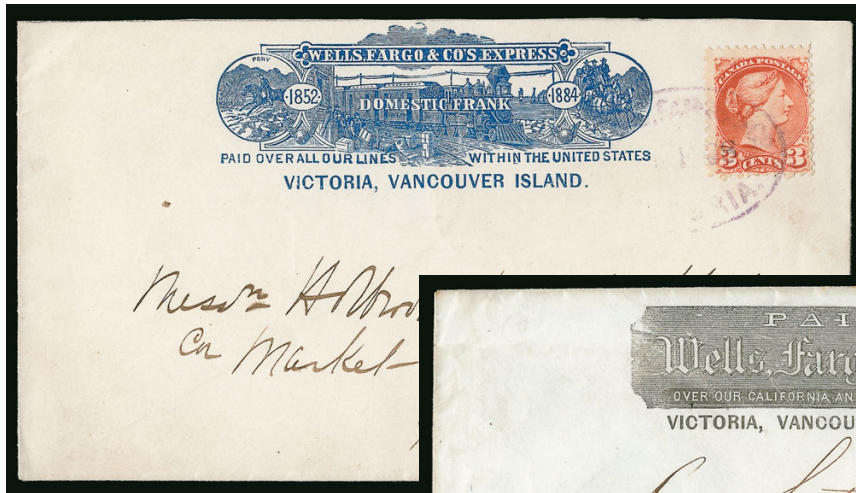 WELLS, FARGO & CO'S EXPRESS
PONY
1852
DOMESTIC FRANK
1884
PAID OVER ALL OUR LINES WITHIN THE UNITED STATES
VICTORIA, VANCOUVER ISLAND.
CANADA POSTAGE
3 CENTS 3
RIA.
Messrs Holbroo
Cor Market
PAI
Wells, Farg
OVER OUR CALIFORNIA AN
VICTORIA, VANCOU